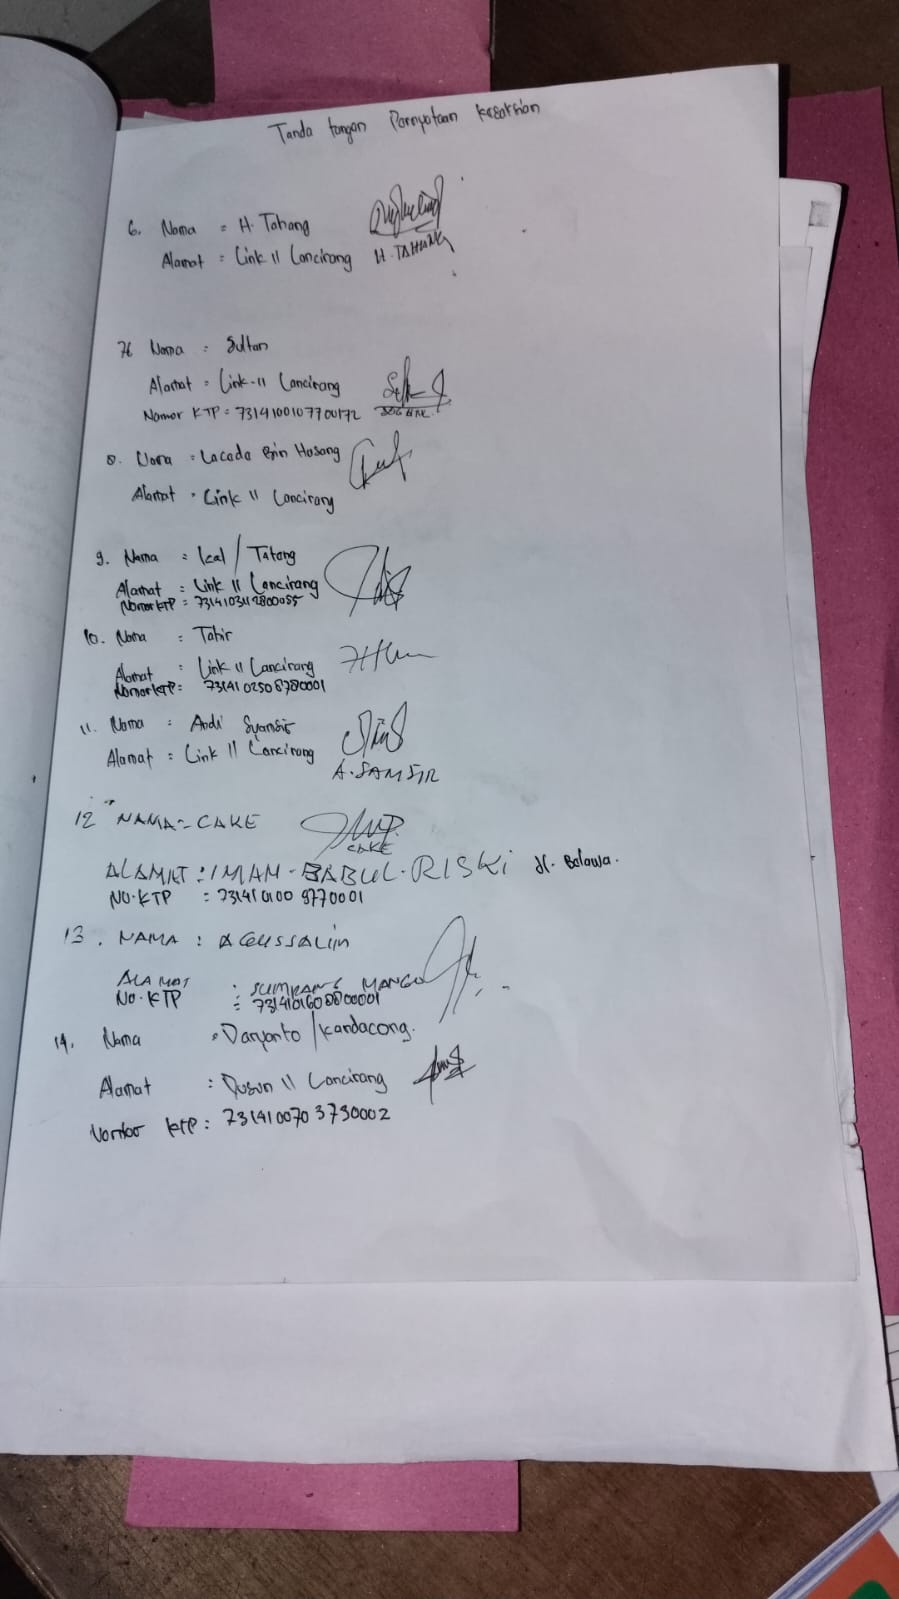 Tanda tangan Pernyataan Kesaksian
6. Nama = H. Tahang
Alamat : Link II Lancirang
H. TAHANG
7 Nama : Sultan
Alamat : Link-II Lancirang
Nomor KTP = 7314100107700172
8. Nama : Lacada Bin Hasang
Alamat : Link II Lancirang
9. Nama : Ical / Tatang
Alamat : Link II Lancirang
Nomor KTP =
10. Nama : Tahir
Alamat : Link II Lancirang
Nomor KTP:
11. Nama : Andi Syamsir
Alamat : Link II Lancirang
A. SAMSIR
12 NAMA = CAKE
CAKE
ALAMAT : IMAM - BABUL. RISKI Jl. Belawa.
NO. KTP : 7314101009770001
13. NAMA : AGUSSALIM
ALAMAT : MANGO
NO. KTP : 7314101608800001
14. Nama : Daryanto / Kandacong.
Alamat : Dusun II Lancirang
Nomor KTP : 7314100703730002